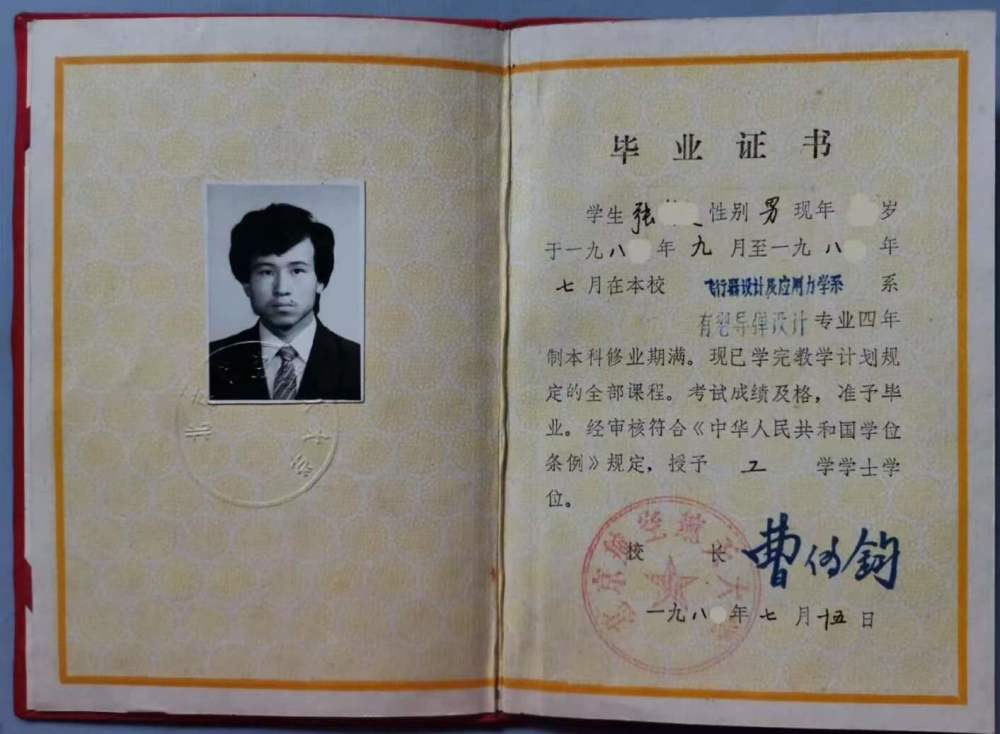 毕业证书
学生 张 性别 男 现年 岁
于一九八 年 九 月至一九 八 年
七 月在本校 飞行器设计及应用力学系 系
有翼导弹设计 专业四年
制本科修业期满。现已学完教学计划规
定的全部课程。考试成绩及格，准予毕
业。经审核符合《中华人民共和国学位
条例》规定，授予 工 学学士学
位。
北京航空航天大学
校 长 曹传钧
一九八 年 七 月 十五 日